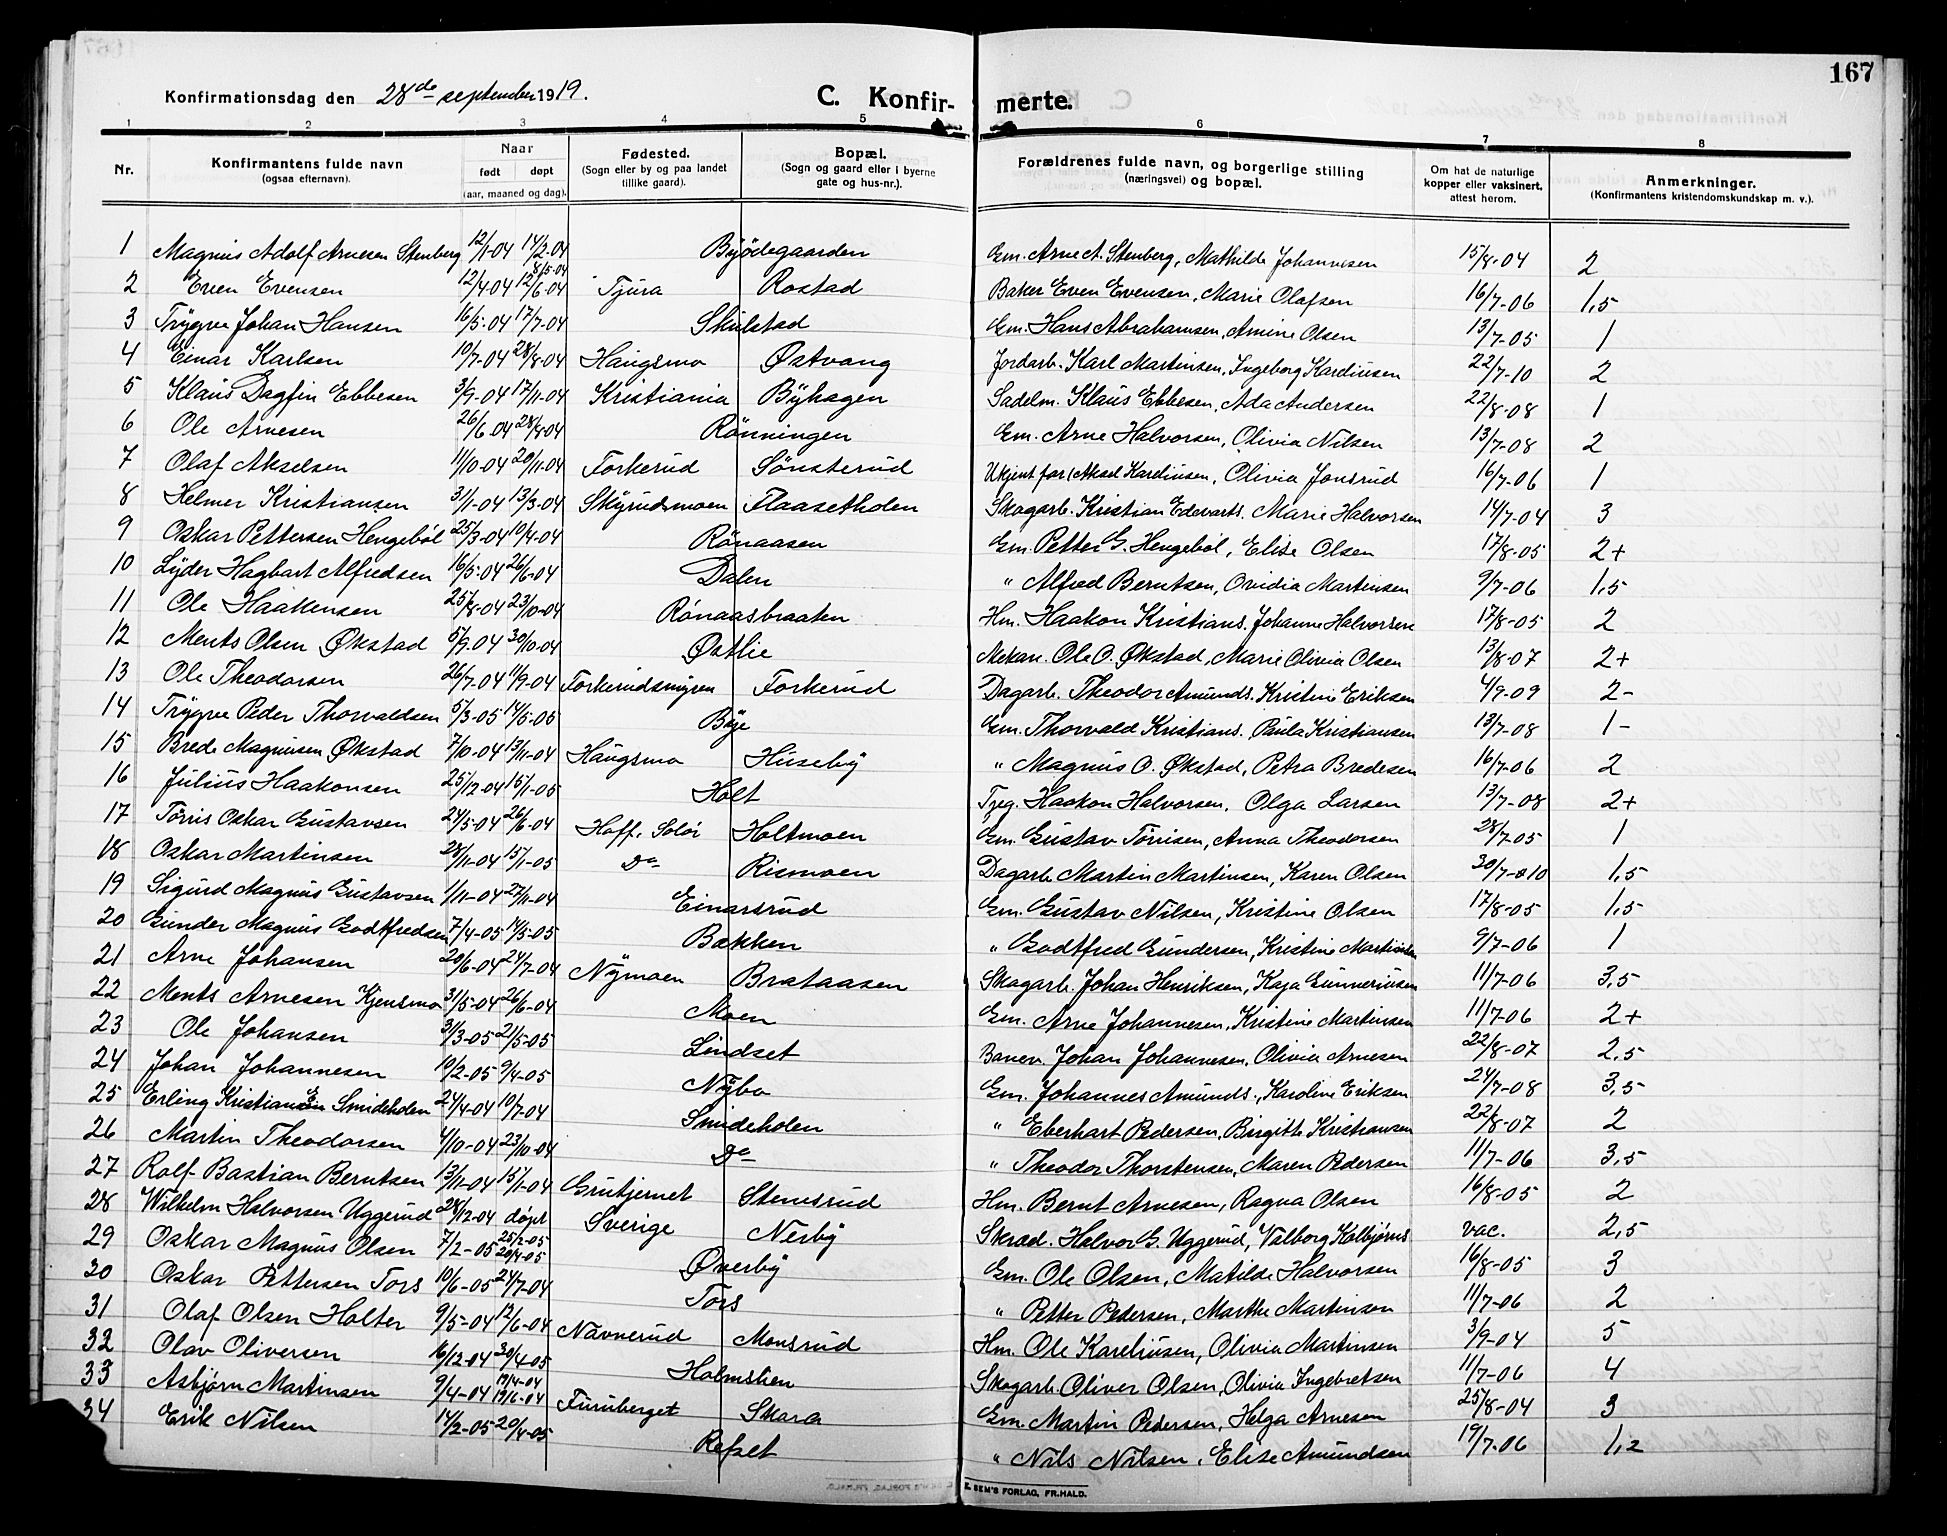 167
Konfirmationsdag den 28de september 1919. C. Konfirmerte.
1 2 3 4 5 6 7 8
Nr. Konfirmantens fulde navn (ogsaa efternavn). Naar født døpt (aar, maaned og dag). Fødested. (Sogn eller by og paa landet tillike gaard). Bopæl. (Sogn og gaard eller i byerne gate og hus-nr.). Forældrenes fulde navn, og borgerlige stilling (næringsvei) og bopæl. Om hat de naturlige kopper eller vaksinert, attest herom. Anmerkninger. (Konfirmantens kristendomskundskap m. v.).
1 Magnus Adolf Arnesen Stenberg 12/1-04 14/2-04 Byödegaarden Gm. Arne A. Stenberg, Mathilde Johannesen 15/8-04 2
2 Even Evensen 12/4-04 8/5-04 12/6-04 Tjura Rostad Baker Even Evensen, Marie Olafsen 16/7-06 1,5
3 Trygve Johan Hansen 16/5-04 17/7-04 Skulstad Gm. Hans Abrahamsen, Amine Olsen 13/7-05 1
4 Einar Karlsen 19/7-04 28/8-04 Haugsmo Østvang Jordarb. Karl Martinsen, Ingeborg Kardiusen 22/7-10 2
5 Klaus Dagfin Ebbesen 3/9-04 17/11-04 Kristiania Byhagen Sadelm. Klaus Ebbesen, Ada Andersen 22/8-08 1
6 Ole Arnesen 26/6-04 28/8-04 Rönningen Gm. Arne Halvorsen, Olivia Nilsen 13/7-08 2
7 Olaf Akselsen 11/10-04 20/11-04 Forkerud Sönsterud Ukjent far (Aksel Kardiusen, Olivia Jonsrud 16/7-06 1
8 Helmer Kristiansen 31/1-04 13/3-04 Skyrudsmoen Flaasetholen Skogarb. Kristian Edevarts. Marie Halvorsen 14/7-04 3
9 Oskar Pettersen Hengeböl 25/3-04 10/4-04 Rönaasen Gm. Petter G. Hengeböl, Elise Olsen 17/8-05 2+
10 Lyder Hagbart Alfredsen 16/5-04 26/6-04 Dalen " Alfred Berntsen, Ovidia Martinsen 9/7-06 1,5
11 Ole Haakensen 25/8-04 23/10-04 Rönaasbraaten Hm. Haakon Kristians. Johanne Halvorsen 17/8-05 2
12 Ments Olsen Økstad 5/9-04 30/10-04 Østlie Mekan. Ole O. Økstad, Marie Olivia Olsen 13/8-07 2+
13 Ole Theodorsen 26/7-04 11/9-04 Forkerudsmyren Forkerud Dagarb. Theodor Amunds. Kristine Eriksen 4/9-09 2-
14 Trygve Peder Thorvaldsen 5/3-05 14/5-05 Bye Gm. Thorvald Kristians. Paula Kristiansen 13/7-08 1-
15 Brede Magnusen Økstad 7/10-04 13/11-04 Haugsmo Huseby " Magnus O. Økstad, Petra Bredesen 16/7-06 2
16 Julius Haakonsen 25/12-04 15/1-05 Holt Tjeg. Haakon Halvorsen, Olga Larsen 13/7-08 2+
17 Törris Oskar Gustavsen 24/5-04 26/6-04 Hoff, Solör Holtmoen Gm. Gustav Törrisen, Anna Theodorsen 28/7-05 1
18 Oskar Martinsen 28/11-04 15/1-05 Do Rismoen Dagarb. Martin Martinsen, Karen Olsen 30/7-10 1,5
19 Sigurd Magnus Gustavsen 1/11-04 27/11-04 Einarsrud Gm. Gustav Nilsen, Kristine Olsen 17/8-05 1,5
20 Gunder Magnus Godtfredsen 7/4-05 14/5-05 Bakken " Godtfred Gundersen, Kristine Martinsen 9/7-06 1
21 Arne Johansen 20/6-04 24/7-04 Nymoen Brataasen Skogarb. Johan Henriksen, Kaja Gunneriusen 11/7-06 3,5
22 Ments Arnesen Kjensmo 31/5-04 26/6-04 Moen Gm. Arne Johannesen, Kristine Martinsen 11/7-06 2+
23 Ole Johansen 31/3-05 21/5-05 Lindset Banev. Johan Johannesen, Olivia Arnesen 22/8-07 2,5
24 Johan Johannesen 10/2-05 9/4-05 Nybo Gm. Johannes Amunds., Karoline Eriksen 24/7-08 3,5
25 Erling Kristiansen Smideholen 24/4-04 10/7-04 Smideholen " Eberhart Pedersen, Birgitte Kristiansen 22/8-07 2
26 Martin Theodorsen 4/10-04 23/10-04 Do " Theodor Thorstensen, Maren Pedersen 11/7-06 3,5
27 Rolf Bastian Berntsen 13/11-04 15/1-04 Grutjernet Stemsrud Hm. Bernt Arnesen, Ragna Olsen 16/8-05 2
28 Wilhelm Halvorsen Uggerud 28/12-04 døpt Sverige Nerby Skræd. Halvor G. Uggerud, Valborg Kolbjørns vac. 2,5
29 Oskar Magnus Olsen 7/2-05 25/2-05 20/4-05 Øverby Gm. Ole Olsen, Matilde Halvorsen 16/8-05 3
30 Oskar Pettersen Tors 10/6-05 24/7-04 Tors " Petter Pedersen, Marthe Martinsen 11/7-06 2
31 Olaf Olsen Holter 9/5-04 12/6-04 Navnerud Monsrud Hm. Ole Kareliusen, Olivia Martinsen 3/9-04 5
32 Olav Oliversen 16/12-04 30/4-05 Holmstien Skogarb. Oliver Olsen, Olivia Ingebretsen 11/7-06 4
33 Asbjørn Martinsen 9/4-04 19/4-04 19/6-04 Furuberget Skara Gm. Martin Pedersen, Helga Arnesen 25/8-04 3
34 Erik Nilsen 14/2-05 20/4-05 Refset " Nils Nilsen, Elise Amundsen 19/7-06 1,2
E. SEM'S FORLAG, FR.HALD.